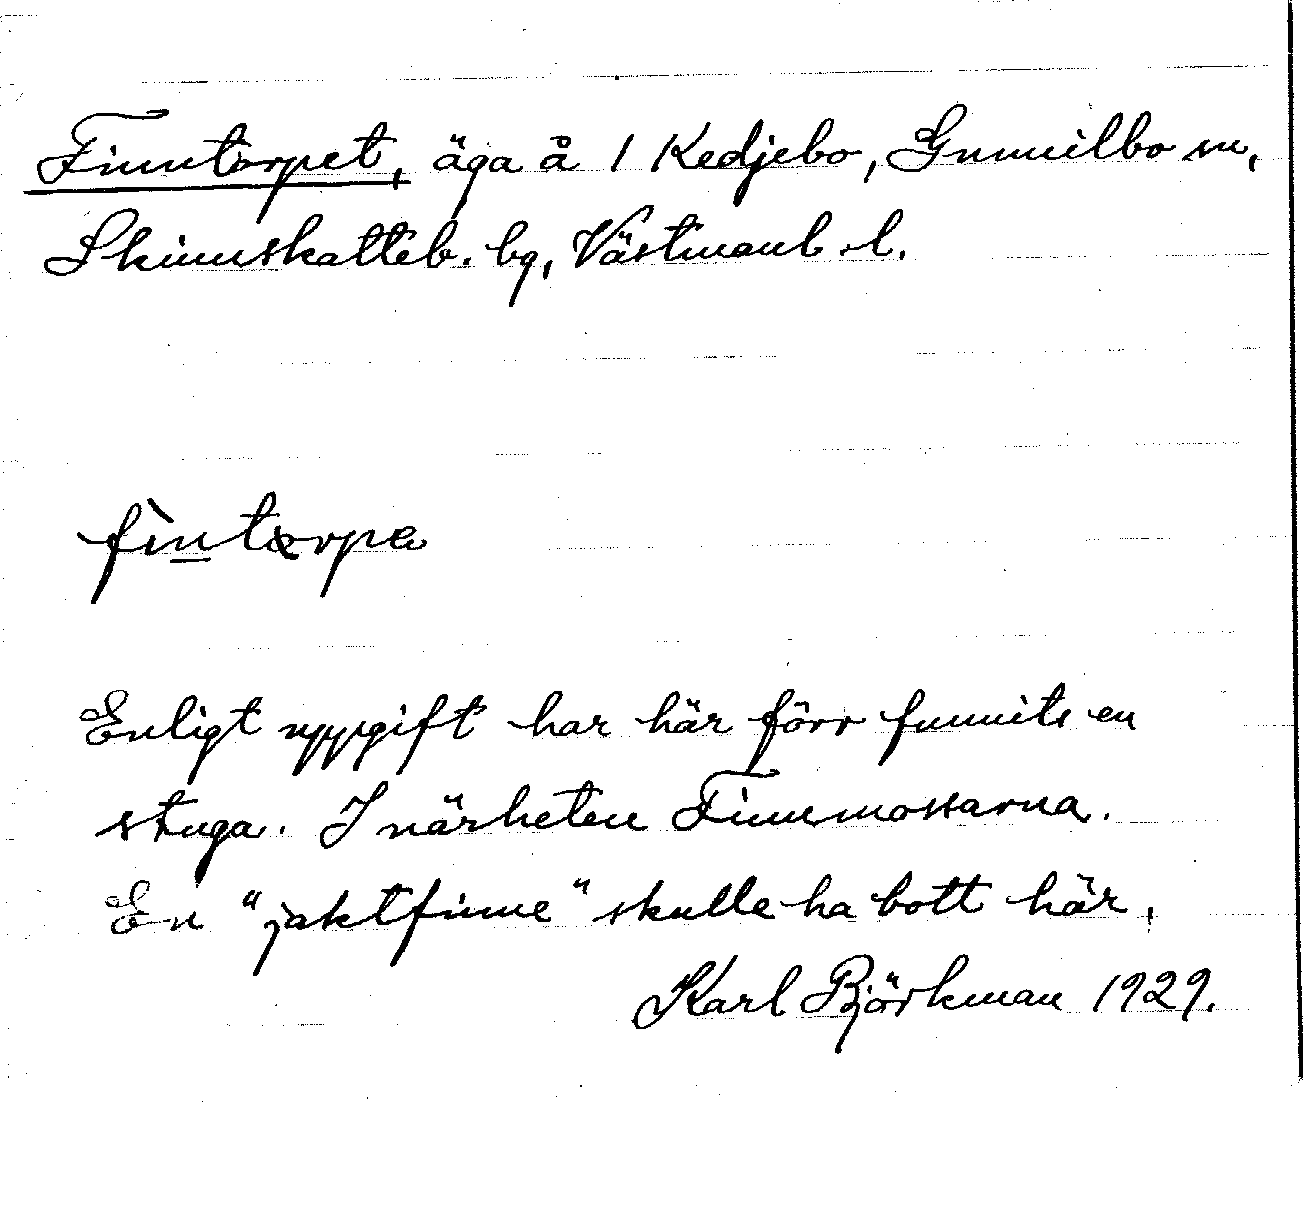 Finntorpet, äga å 1 Kedjebo, Gunnilbo sn,
Skinnskatteb. bg, Västmanl. l.
fìntorpa
Enligt uppgift har här förr funnits en
stuga. I närheten Finnmossarna.
En "jaktfinne" skulle ha bott här.
Karl Björkman 1929.